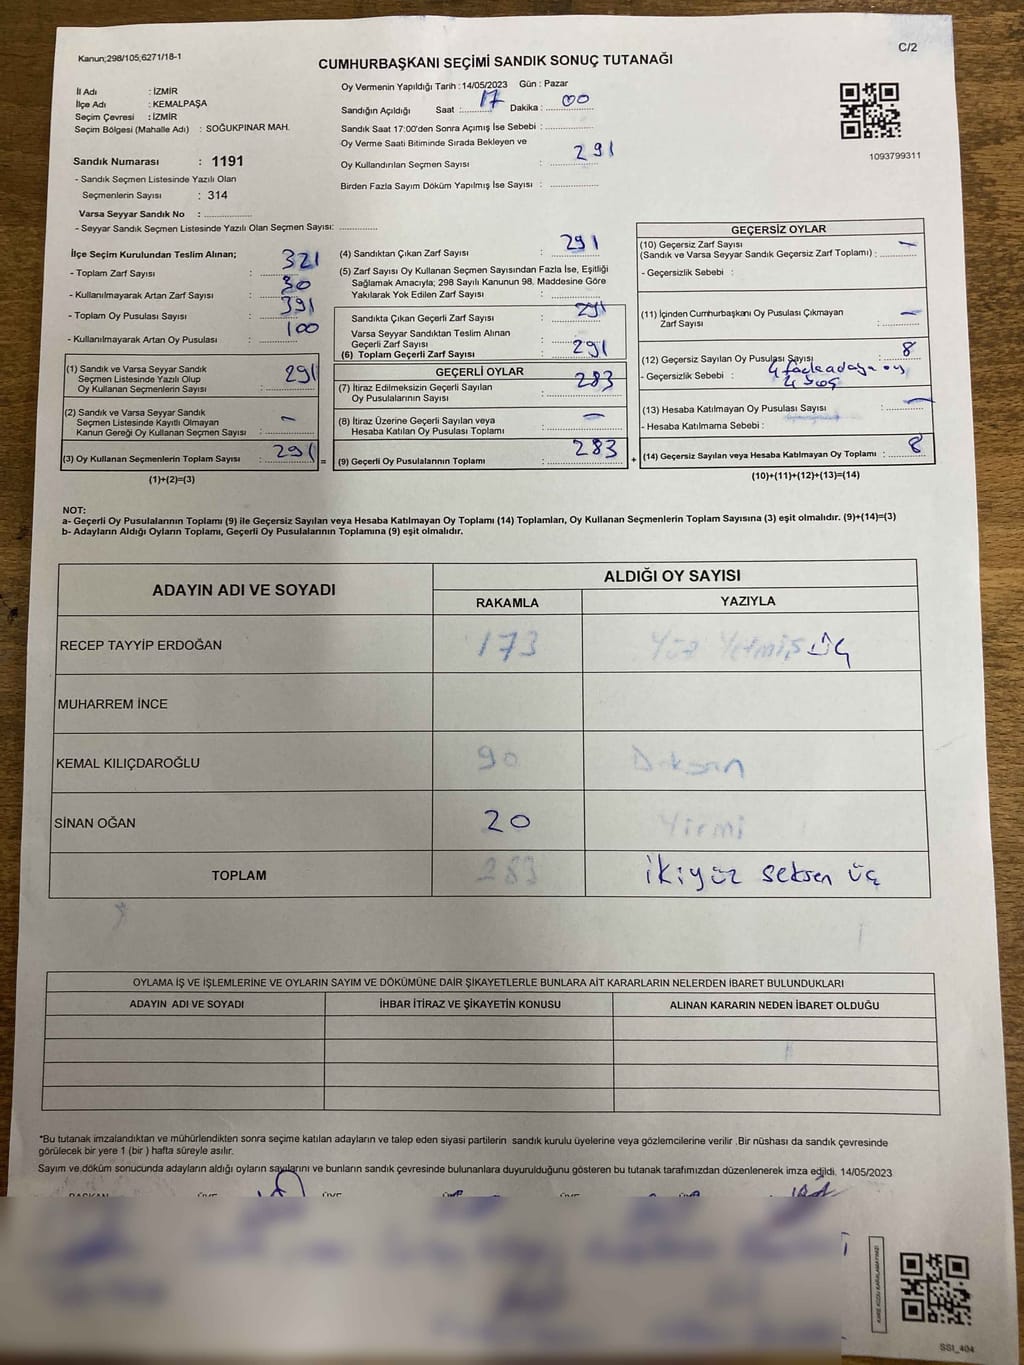 Kanun;298/105;6271/18-1
C/2
CUMHURBAŞKANI SEÇİMİ SANDIK SONUÇ TUTANAĞI
İl Adı : İZMİR
İlçe Adı : KEMALPAŞA
Seçim Çevresi : İZMİR
Seçim Bölgesi (Mahalle Adı) : SOĞUKPINAR MAH.
Sandık Numarası : 1191
- Sandık Seçmen Listesinde Yazılı Olan
Seçmenlerin Sayısı : 314
Varsa Seyyar Sandık No :
- Seyyar Sandık Seçmen Listesinde Yazılı Olan Seçmen Sayısı:
Oy Vermenin Yapıldığı Tarih : 14/05/2023 Gün : Pazar
Sandığın Açıldığı Saat : 17 Dakika : 00
Sandık Saat 17:00'den Sonra Açımış İse Sebebi :
Oy Verme Saati Bitiminde Sırada Bekleyen ve
Oy Kullandırılan Seçmen Sayısı : 291
Birden Fazla Sayım Döküm Yapılmış İse Sayısı :
1093799311
İlçe Seçim Kurulundan Teslim Alınan;
- Toplam Zarf Sayısı : 321
- Kullanılmayarak Artan Zarf Sayısı : 30
- Toplam Oy Pusulası Sayısı : 391
- Kullanılmayarak Artan Oy Pusulası : 100
(1) Sandık ve Varsa Seyyar Sandık
Seçmen Listesinde Yazılı Olup
Oy Kullanan Seçmenlerin Sayısı : 291
(2) Sandık ve Varsa Seyyar Sandık
Seçmen Listesinde Kayıtlı Olmayan
Kanun Gereği Oy Kullanan Seçmen Sayısı : -
(3) Oy Kullanan Seçmenlerin Toplam Sayısı : 291 =
(1)+(2)=(3)
(4) Sandıktan Çıkan Zarf Sayısı : 291
(5) Zarf Sayısı Oy Kullanan Seçmen Sayısından Fazla İse, Eşitliği
Sağlamak Amacıyla; 298 Sayılı Kanunun 98. Maddesine Göre
Yakılarak Yok Edilen Zarf Sayısı :
Sandıkta Çıkan Geçerli Zarf Sayısı : 291
Varsa Seyyar Sandıktan Teslim Alınan
Geçerli Zarf Sayısı :
(6) Toplam Geçerli Zarf Sayısı : 291
GEÇERLİ OYLAR
(7) İtiraz Edilmeksizin Geçerli Sayılan
Oy Pusulalarının Sayısı : 283
(8) İtiraz Üzerine Geçerli Sayılan veya
Hesaba Katılan Oy Pusulası Toplamı : -
(9) Geçerli Oy Pusulalarının Toplamı : 283 +
GEÇERSİZ OYLAR
(10) Geçersiz Zarf Sayısı
(Sandık ve Varsa Seyyar Sandık Geçersiz Zarf Toplamı) : -
- Geçersizlik Sebebi :
(11) İçinden Cumhurbaşkanı Oy Pusulası Çıkmayan
Zarf Sayısı : -
(12) Geçersiz Sayılan Oy Pusulası Sayısı : 8
- Geçersizlik Sebebi : 4 fazla adaya oy
4 boş
(13) Hesaba Katılmayan Oy Pusulası Sayısı : -
- Hesaba Katılmama Sebebi :
(14) Geçersiz Sayılan veya Hesaba Katılmayan Oy Toplamı : 8
(10)+(11)+(12)+(13)=(14)
NOT:
a- Geçerli Oy Pusulalarının Toplamı (9) ile Geçersiz Sayılan veya Hesaba Katılmayan Oy Toplamı (14) Toplamları, Oy Kullanan Seçmenlerin Toplam Sayısına (3) eşit olmalıdır. (9)+(14)=(3)
b- Adayların Aldığı Oyların Toplamı, Geçerli Oy Pusulalarının Toplamına (9) eşit olmalıdır.
ADAYIN ADI VE SOYADI
ALDIĞI OY SAYISI
RAKAMLA YAZIYLA
RECEP TAYYİP ERDOĞAN 173 Yüz Yetmiş üç
MUHARREM İNCE
KEMAL KILIÇDAROĞLU 90 Doksan
SİNAN OĞAN 20 Yirmi
TOPLAM 283 ikiyüz seksen üç
OYLAMA İŞ VE İŞLEMLERİNE VE OYLARIN SAYIM VE DÖKÜMÜNE DAİR ŞİKAYETLERLE BUNLARA AİT KARARLARIN NELERDEN İBARET BULUNDUKLARI
ADAYIN ADI VE SOYADI İHBAR İTİRAZ VE ŞİKAYETİN KONUSU ALINAN KARARIN NEDEN İBARET OLDUĞU
*Bu tutanak imzalandıktan ve mühürlendikten sonra seçime katılan adayların ve talep eden siyasi partilerin sandık kurulu üyelerine veya gözlemcilerine verilir .Bir nüshası da sandık çevresinde
görülecek bir yere 1 (bir ) hafta süreyle asılır.
Sayım ve döküm sonucunda adayların aldığı oyların sayılarını ve bunların sandık çevresinde bulunanlara duyurulduğunu gösteren bu tutanak tarafımızdan düzenlenerek imza edildi. 14/05/2023
BAŞKAN ÜYE ÜYE ÜYE ÜYE
SSI_404